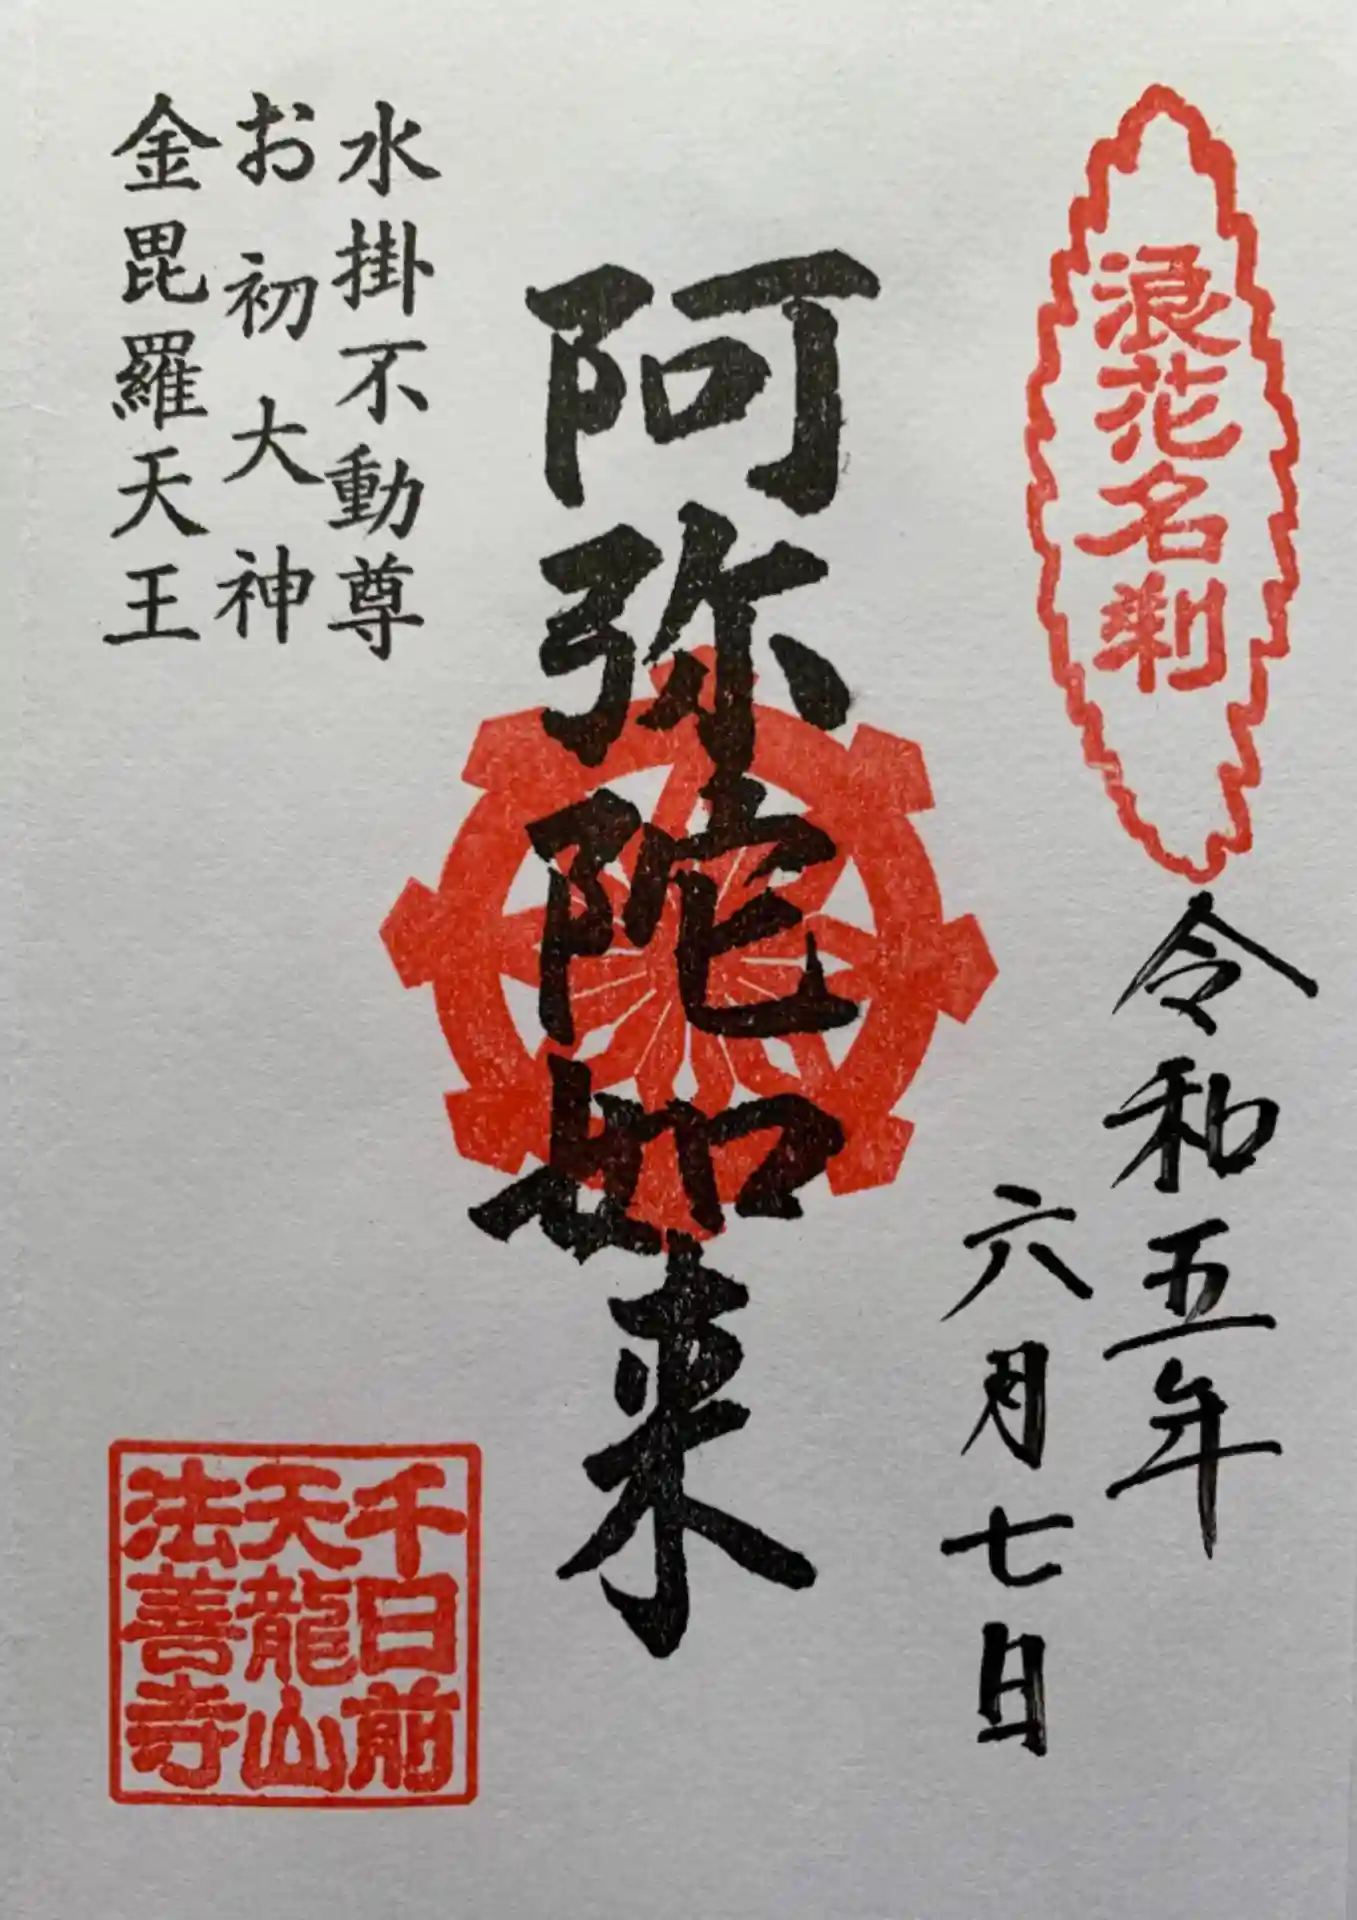 浪花名刹
令和五年
六月七日
阿弥陀如来
水掛不動尊
お初大神
金毘羅天王
千日前
天龍山
法善寺